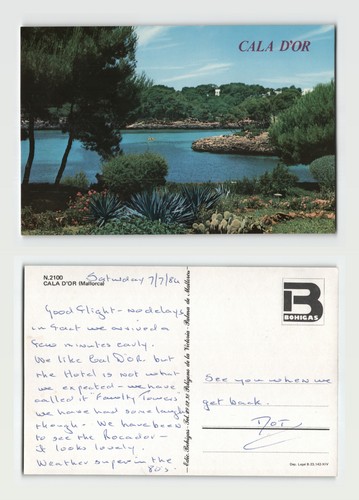 CALA D'OR
N.2100
CALA D'OR (Mallorca)
BOHIGAS
Saturday 7/7/84
Good flight - no delays
in fact we arrived a
few minutes early.
We like Cal D'OR but
the Hotel is not what
we expected - we have
called it "Faulty Towers"
we have had some laughs
though - We have been
to see the Rocador -
it looks lovely.
Weather super in the
80s.
See you when we
get back.
DOT
Edic. Bohigas - Tel.
Polígono de la Victoria - Palma de Mallorca
Dep. Legal B 23.143-XIV